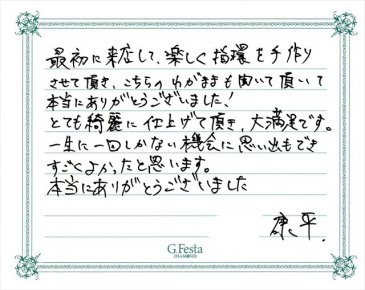 最初に来店して、楽しく指環を手作り
させて頂き、こちらのわがままも聞いて頂いて
本当にありがとうございました！
とても綺麗に仕上げて頂き、大満足です。
一生に一回しかない機会に思い出もでき
すごくよかったと思います。
本当にありがとうございました
康平.
G.Festa
DIAMOND